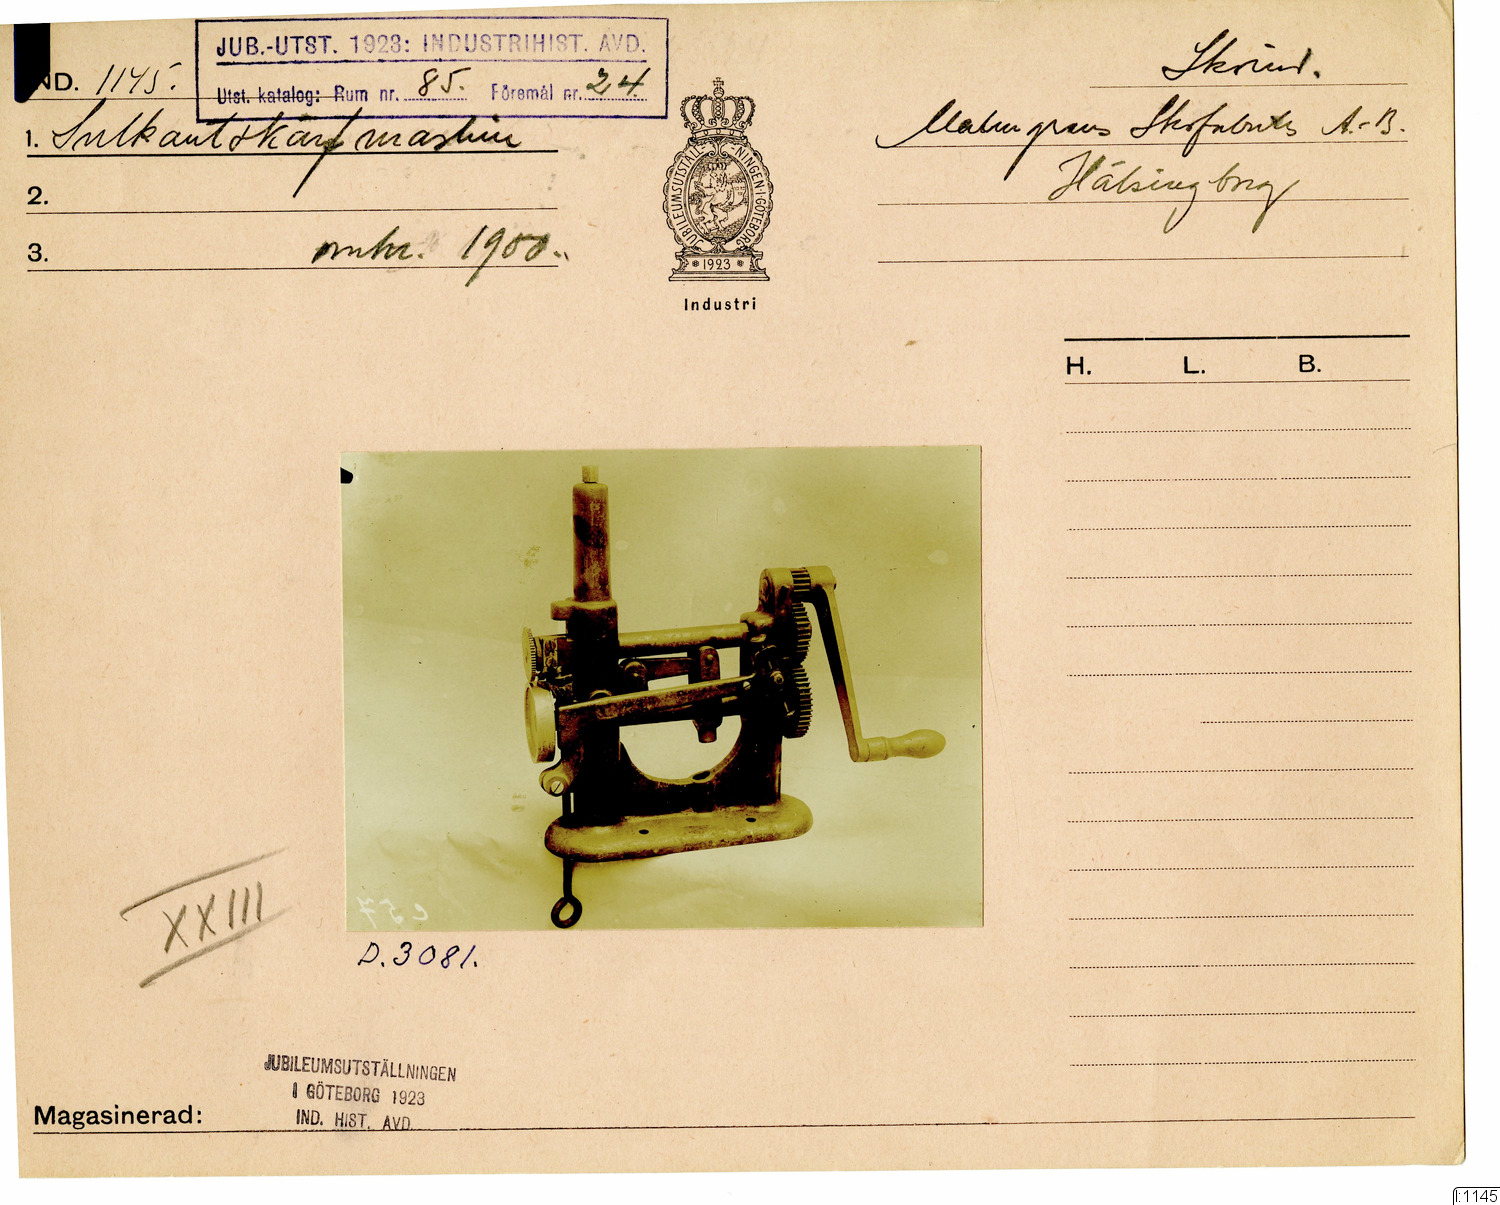 JUB.-UTST. 1923: INDUSTRIHIST. AVD.
IND. 1145.
Utst. katalog: Rum nr. 85. Föremål nr. 24
Skoind.
1. Sulkantskärfmaskin
Malmgrens Skofabriks A.-B.
2.
Hälsingborg
3. omkr. 1900.
JUBILEUMSUTSTÄLL-NINGEN·I·GÖTEBORG
1923
Industri
H. L. B.
C57
XXIII
D.3081.
JUBILEUMSUTSTÄLLNINGEN
I GÖTEBORG 1923
IND. HIST. AVD.
Magasinerad:
I:1145